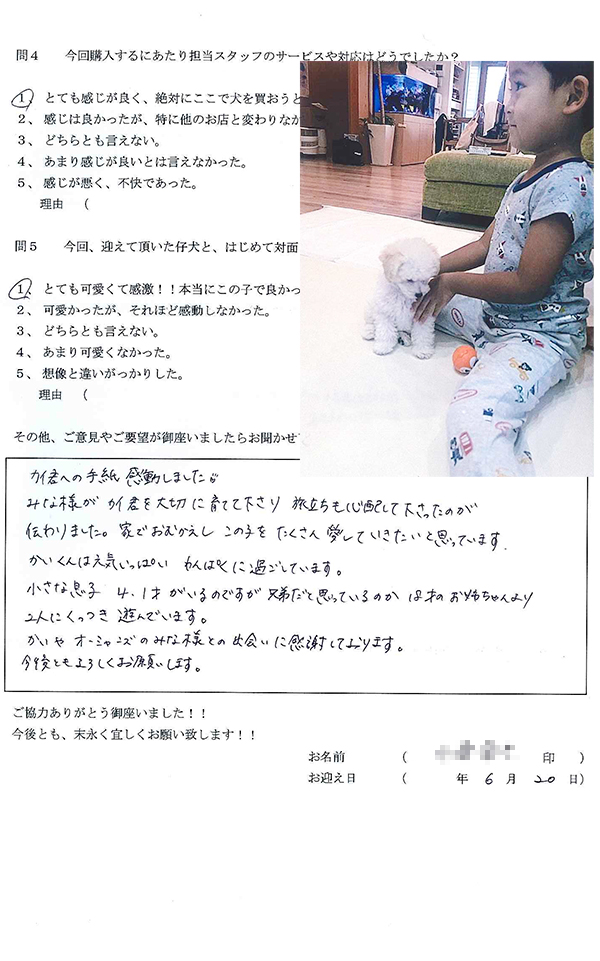 問4 今回購入するにあたり担当スタッフのサービスや対応はどうでしたか？
1、 とても感じが良く、絶対にここで犬を買おうと
2、 感じは良かったが、特に他のお店と変わりなか
3、 どちらとも言えない。
4、 あまり感じが良いとは言えなかった。
5、 感じが悪く、不快であった。
理由 (
問5 今回、迎えて頂いた仔犬と、はじめて対面
1、 とても可愛くて感激！！本当にこの子で良かっ
2、 可愛かったが、それほど感動しなかった。
3、 どちらとも言えない。
4、 あまり可愛くなかった。
5、 想像と違いがっかりした。
理由 (
その他、ご意見やご要望が御座いましたらお聞かせ
カイ君への手紙 感動しました。
みな様が カイ君を大切に育てて下さり 旅立ちも心配して下さったのが
伝わりました。家でおむかえし この子を たくさん 愛していきたいと思っています.
かいくんは元気いっぱい わんぱくに過ごしています。
小さな息子 4、1才がいるのですが 兄弟だと思っているのか 18才のお姉ちゃんより
2人にくっつき 遊んでいます。
かいや オーシャンズのみな様との出会いに感謝しております。
今後ともよろしくお願いします。
ご協力ありがとう御座いました！！
今後とも、末永く宜しくお願い致します！！
お名前 ( 印 )
お迎え日 ( 年 6 月 20 日)